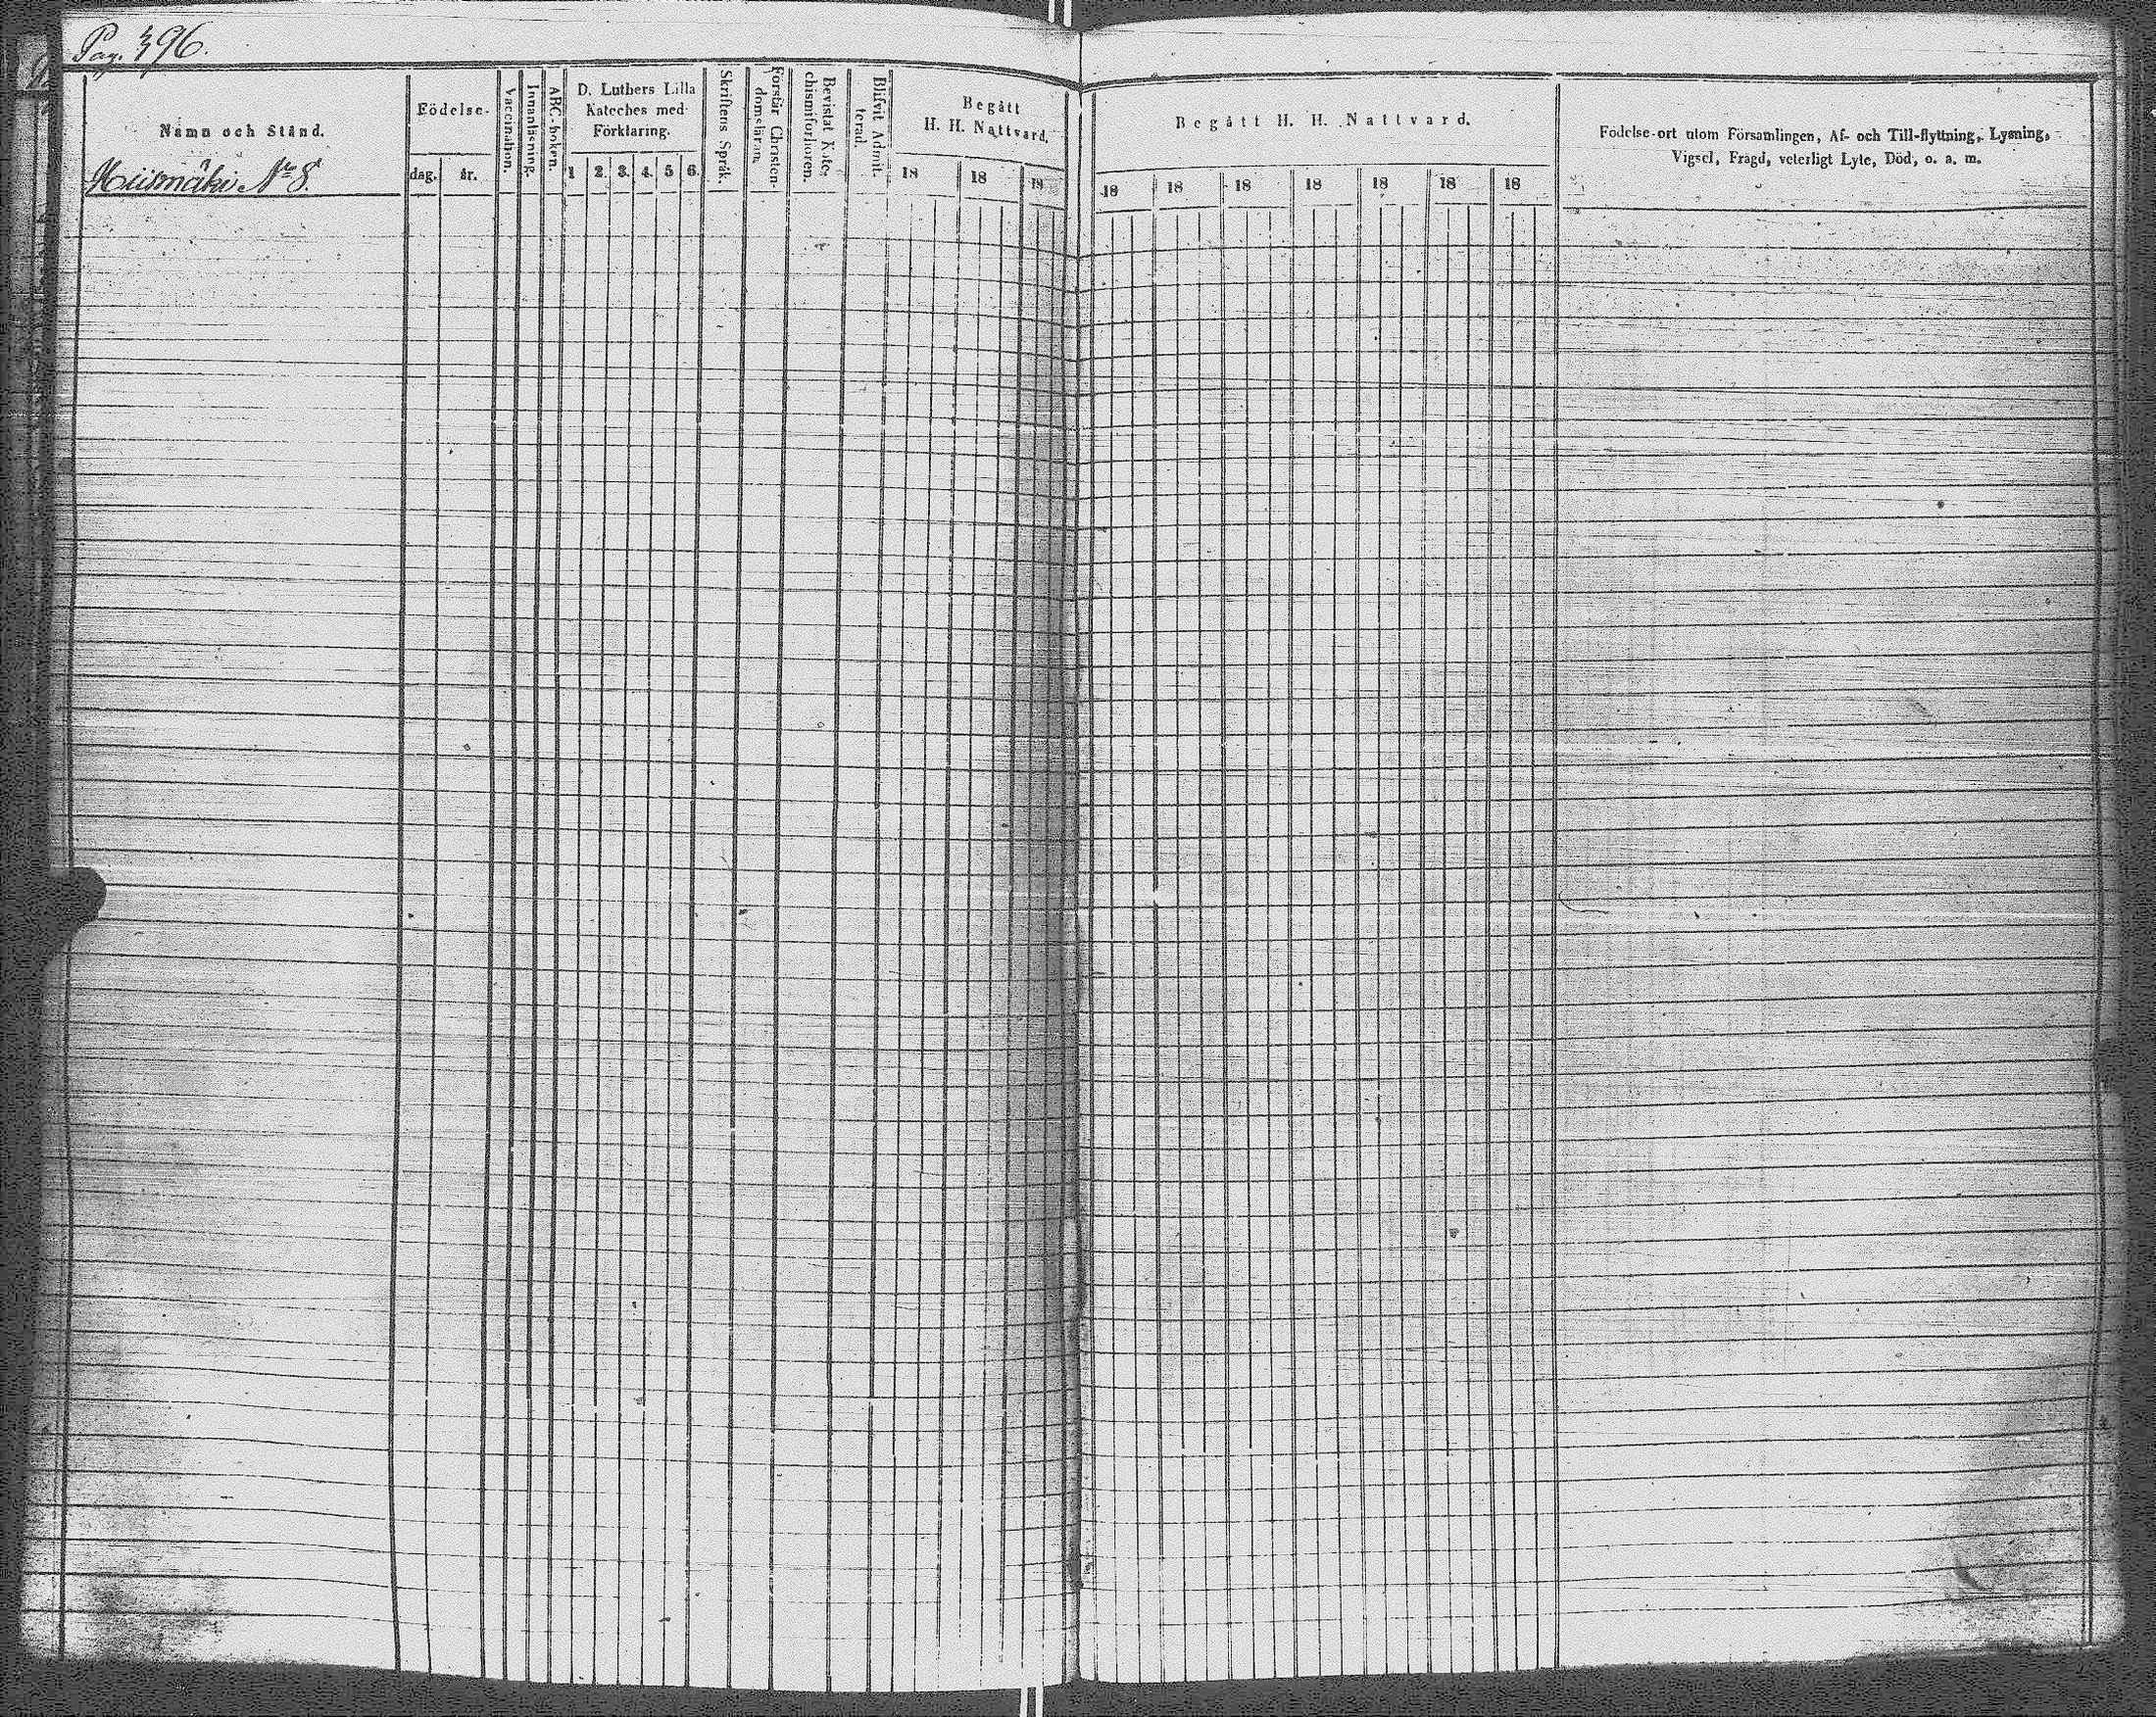 Pag. 396.
Namn och Stånd.
Hiismäki No 8.
Födelse-
dag.
år.
Vaccination.
Innanläsning.
ABC-boken.
D. Luthers Lilla
Kateches med
Förklaring.
1 2. 3. 4. 5 6.
Skriftens Språk.
Förstår Christen-
domsläran.
Bevistat Kate-
chismiförhören.
Blifvit Admit-
terad.
Begått
H. H. Nattvard.
18 18 18
Begått H. H. Nattvard.
18 18 18 18 18 18 18
Födelse-ort utom Församlingen, Af- och Till-flyttning, Lysning,
Vigsel, Frägd, veterligt Lyte, Död, o. a. m.